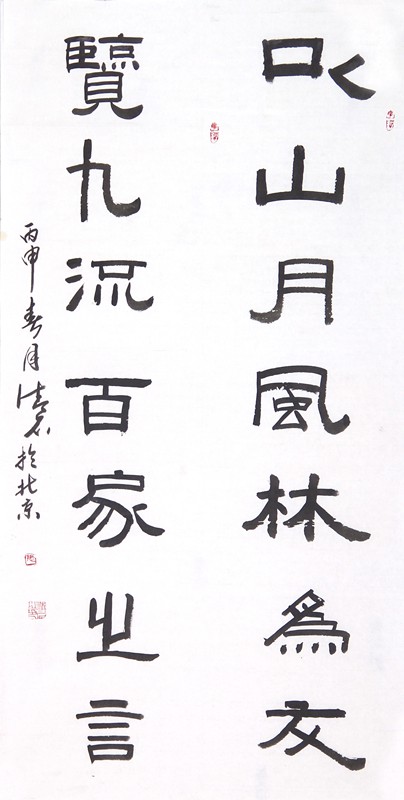 以山月風林為友
覽九流百家之言
丙申春月於北京